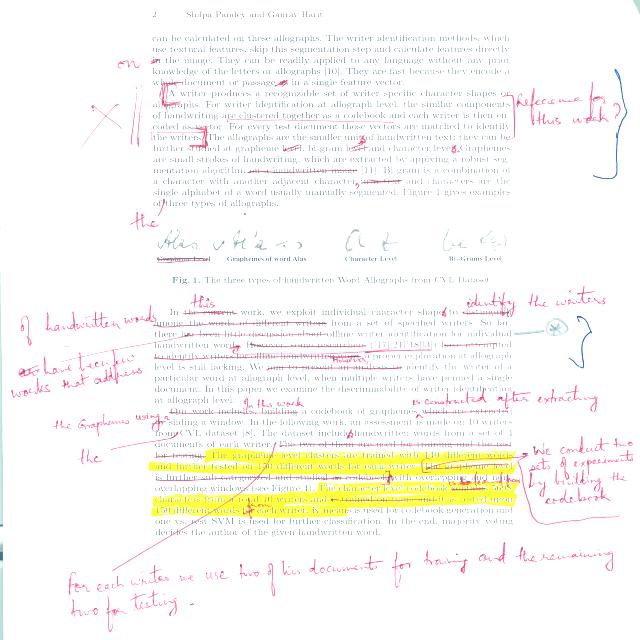 2 Shilpa Pandey and Gaurav Harit
can be calculated on these allographs. The writer identification methods, which
use textural features, skip this segmentation step and calculate features directly
on
in the image. They can be readily applied to any language without any prior
knowledge of the letters or allographs [10]. They are fast because they encode a
whole document or passage in a single feature vector.
A writer produces a recognizable set of writer specific character shapes or
allographs. For writer identification at allograph level, the similar components
Reference for this work?
of handwriting are clustered together as a codebook and each writer is then
coded as vector. For every test document those vectors are matched to identify
the writers. The allographs are the smaller units of handwritten text; they can be
further studied at grapheme level, Bi-gram level and character level. Graphemes
are small strokes of handwriting, which are extracted by applying a robust seg-
mentation algorithm on a handwritten image [11]. Bi-gram is a combination of
a character with another adjacent character, and characters are the
single alphabet of a word usually manually segmented. Figure 1 gives examples
of three types of allographs.
the
Grapheme Level Graphemes of word Alas Character Level Bi-Grams Level
Fig. 1. The three types of handwritten Word Allographs from CVL Dataset
this
identify the writers
In the current work, we exploit individual character shape to distinguish
of handwritten words
among the words of different writers from a set of specified writers. So far,
there has been little discussion about offline writer identification for individual
handwritten words. However, some researchers [17][21][18][3] have attempted
have been few works that address
to identify writers for offline handwritten proper exploration at allograph
level is still lacking. We identify the writer of a
particular word at allograph level, when multiple writers have penned a single
document. In this paper we examine the discriminability of writer identification
at allograph level.
In this work
is constructed after extracting
Our work includes building a codebook of graphemes which are extracted
the Graphemes using
by sliding a window. In the following work, an assessment is made on 10 writers
the
from CVL dataset [8]. The dataset includes handwritten words from a set of 4
documents of each writer. The two of them used for training and the rest
for testing. The grapheme level clusters are trained with 10 different words
and further tested on 150 different words for each writer. The grapheme level
is further sub categorised and studied with overlapping and non
overlapping window (see Figure 1). The character level codebook
We conduct two sets of experiments by building the codebook
150 different words of each writer. K-means is used for codebook generation and
one vs rest SVM is used for further classification. In the end, majority voting
decides the author of the given handwritten word.
For each writer we use two of his documents for training and the remaining
two for testing.